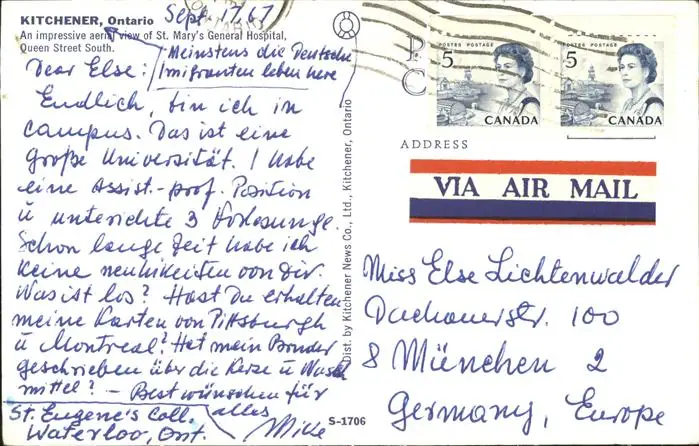 KITCHENER, Ontario
An impressive aerial view of St. Mary's General Hospital,
Queen Street South.
Sept. 17/67
Meinstens die Deutsche
Imigranten leben here
Dear Else:
Endlich, bin ich in
campus. Das ist eine
große Universität. I habe
eine Assist.-prof. Position
u unterichte 3 Vorlesunge.
Schon lange Zeit habe ich
keine neuhikeiten von Dir.
Was ist los? Hast Du erhalten
meine Karten von Pittsburgh
u Montreal? Hat mein Bruder
geschrieben über die Kerze u Wasch
mittel? – Best wünschen für
alles
Mike
St. Eugene's Coll.
Waterloo, Ont.
Dist. by Kitchener News Co., Ltd., Kitchener, Ontario
S-1706
POSTES POSTAGE
5
CANADA
POSTES POSTAGE
5
CANADA
P
C
ADDRESS
VIA AIR MAIL
Miss Else Lichtenwalder
Dachauerstr. 100
8 München 2
Germany, Europe